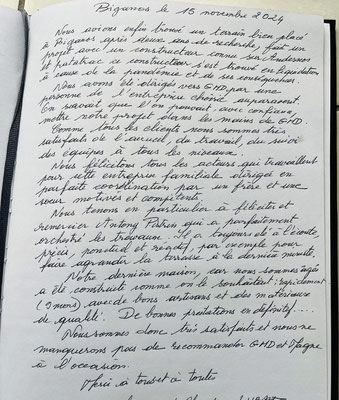 Biganos le 15 novembre 2024
Nous avions enfin trouvé un terrain bien placé
à Biganos après deux ans de recherche, fait un
projet avec un constructeur connu sur Andernos
et patatrac ce constructeur s'est trouvé en liquidation
à cause de la pandémie et de ses conséquences
Nous avons été dirigés vers GHD par une
personne de l'entreprise choisie auparavant.
On savait que l'on pouvait avec confiance,
mettre notre projet dans les mains de GHD
Comme tous les clients nous sommes très
satisfaits de l'accueil, du travail, du suivi
des équipes à tous les niveaux.
Nous félicitons tous les acteurs qui travaillent
pour cette entreprise familiale dirigée en
parfaite coordination par un frère et une
soeur motivés et compétents.
Nous tenons en particulier à féliciter et
remercier Antony qui a parfaitement
orchestré les travaux. Il a toujours été à l'écoute,
précis, ponctuel et réactif, par exemple pour
faire agrandir la terrasse à la dernière minute.
Notre dernière maison, car nous sommes âgés
a été construite comme on le souhaitait : rapidement
(9 mois), avec de bons artisans et des matériaux
de qualité. De bonnes prestations en définitif.....
Nous sommes donc très satisfaits et nous ne
manquerons pas de recommander GHD et
à l'occasion.
Merci à tous et à toutes